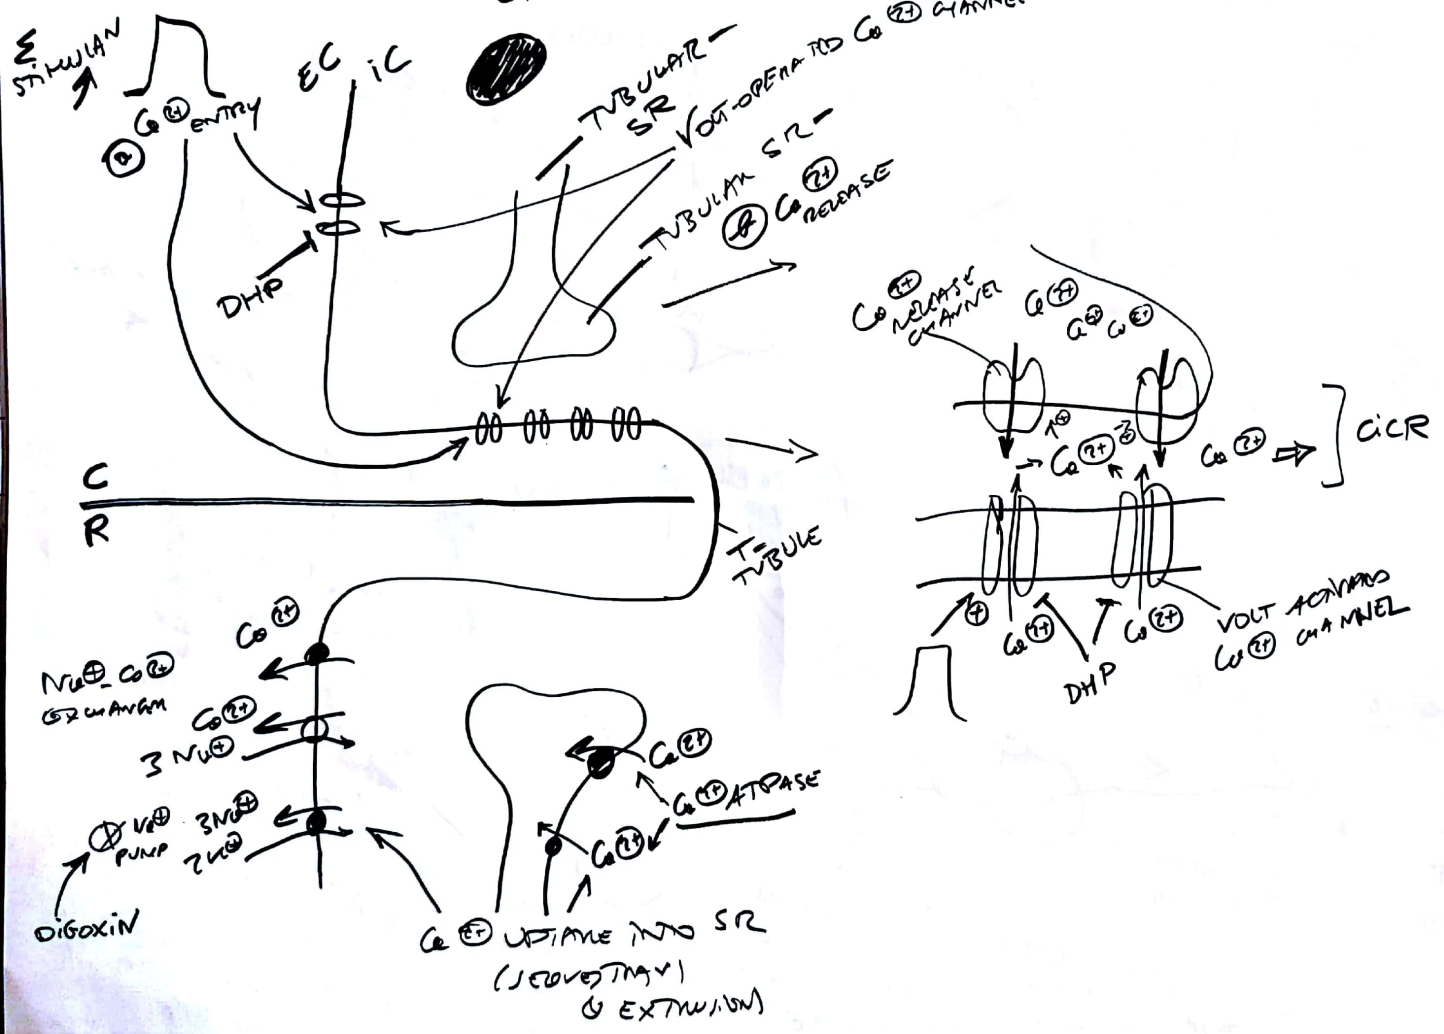 Σ
STIMULAN
Ca 2+ ENTRY
a
EC iC
TUBULAR-
SR
VOLT-OPERATED Ca 2+ CHANNEL
TUBULAR SR-
b Ca 2+
RELEASE
DHP
C
R
T-
TUBULE
Ca 2+
RELEASE
CHANNEL
Ca 2+
Ca 2+ Ca 2+
+
Ca 2+ +
Ca 2+
CiCR
+
Ca 2+
Ca 2+
DHP
VOLT ACTIVATED
Ca 2+ CHANNEL
Ca 2+
Na + - Ca 2+
EXCHANGER
Ca 2+
3 Na +
Na +
PUMP
3Na +
2K +
DIGOXIN
Ca 2+
Ca 2+ ATPASE
Ca 2+
Ca 2+ UPTAKE INTO SR
& EXTRUSION)